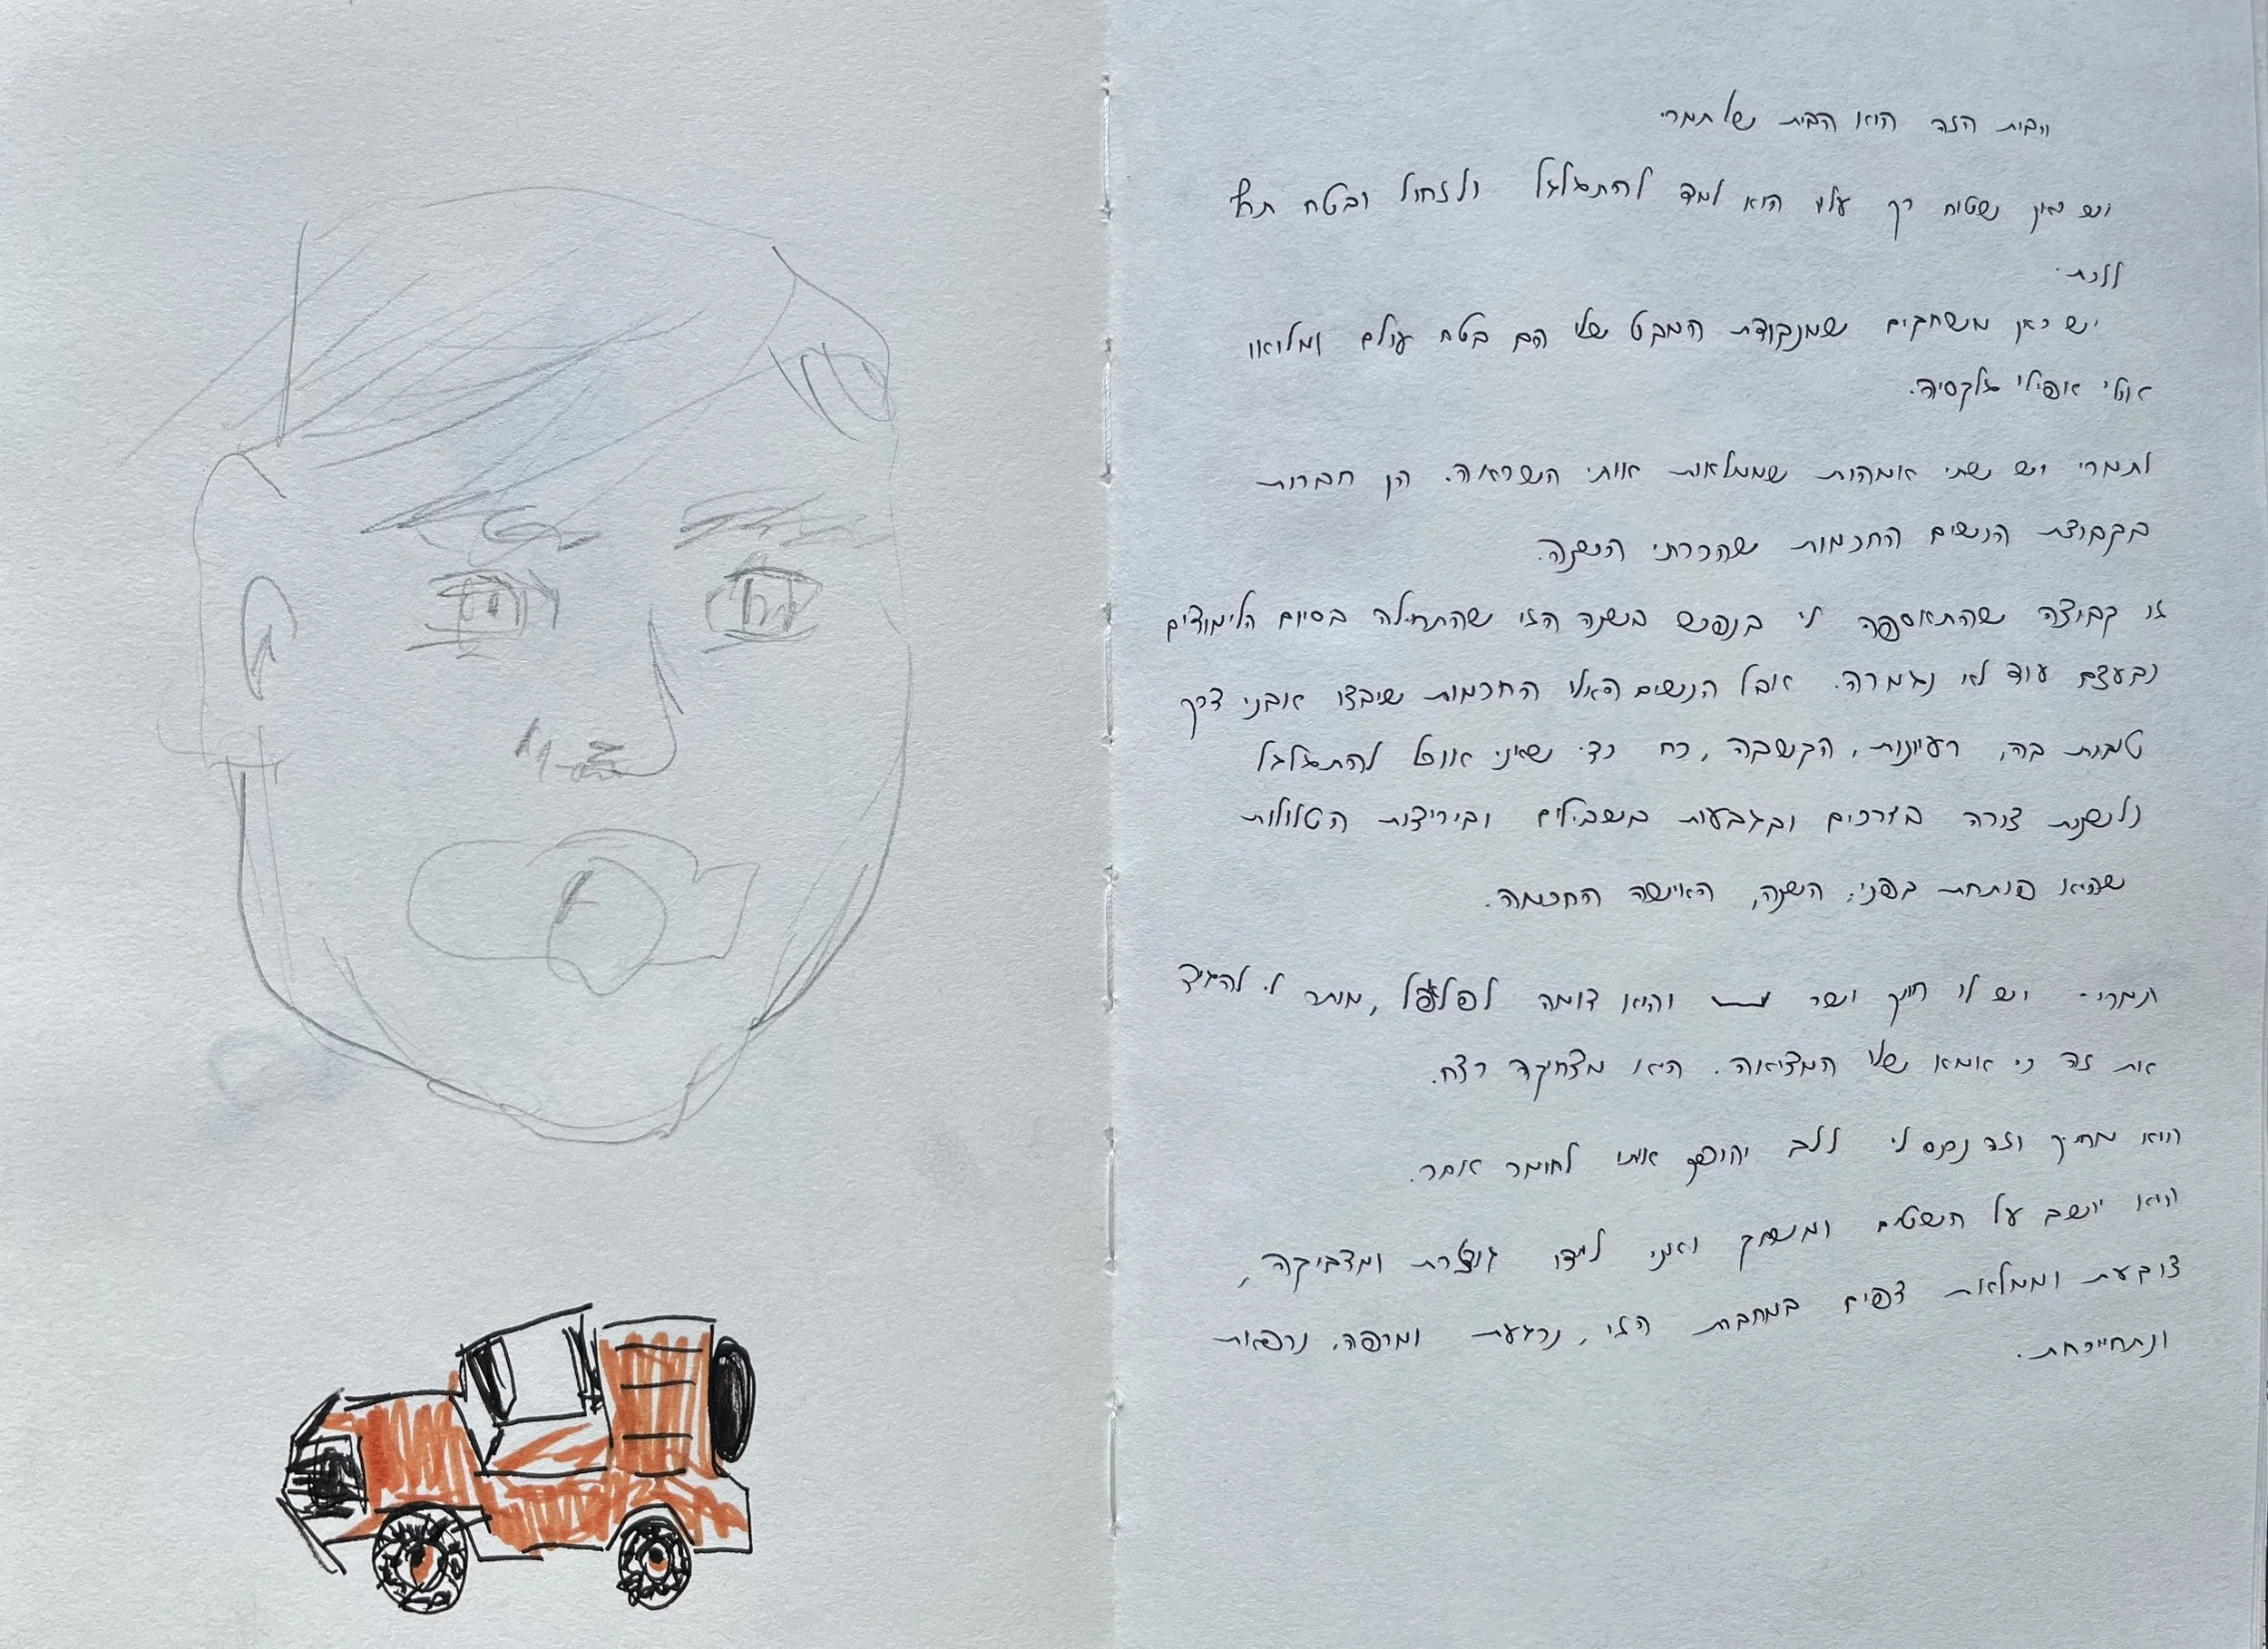 הבית הזה הוא הבית של תמרי.
יש כאן שטיח רך עליו הוא למד להתגלגל ולזחול ובטח תיכף
ללכת.
יש כאן משחקים שמנקודת המבט שלו הם בטח עולם ומלואו
אולי אפילו גלקסיה.
לתמרי יש שתי אמהות שממלאות אותי השראה. הן חברות
בקבוצת הנשים החכמות שהכרתי השנה.
זו קבוצה שהתאספה לי בנפש בשנה הזו שהתחילה בסיום הלימודים
ובעצם עוד לא נגמרה. אבל הנשים האלו החכמות שיבצו אבני דרך
טובות בה, רעיונות, הקשבה, כח כדי שאני אוכל להתגלגל
ולשנות צורה בדרכים ובגבעות בשבילים ובירידות התלולות
שהיא פותחת בפני, השנה, האישה החכמה.
תמרי - יש לו חיוך ישר והוא דומה לפלאפל, מותר לי להגיד
את זה כי אמא שלו המציאה. היא מצחיקה רצח.
הוא מחייך וזה נכנס לי ללב והופך אותי לחומר אחר.
הוא יושב על השטיח ומשחק ואני לידו גוזרת ומדביקה,
צובעת וממלאת דפים במחברת הזו, נרגעת ומרפה, נרפאת
ונתחייכת.